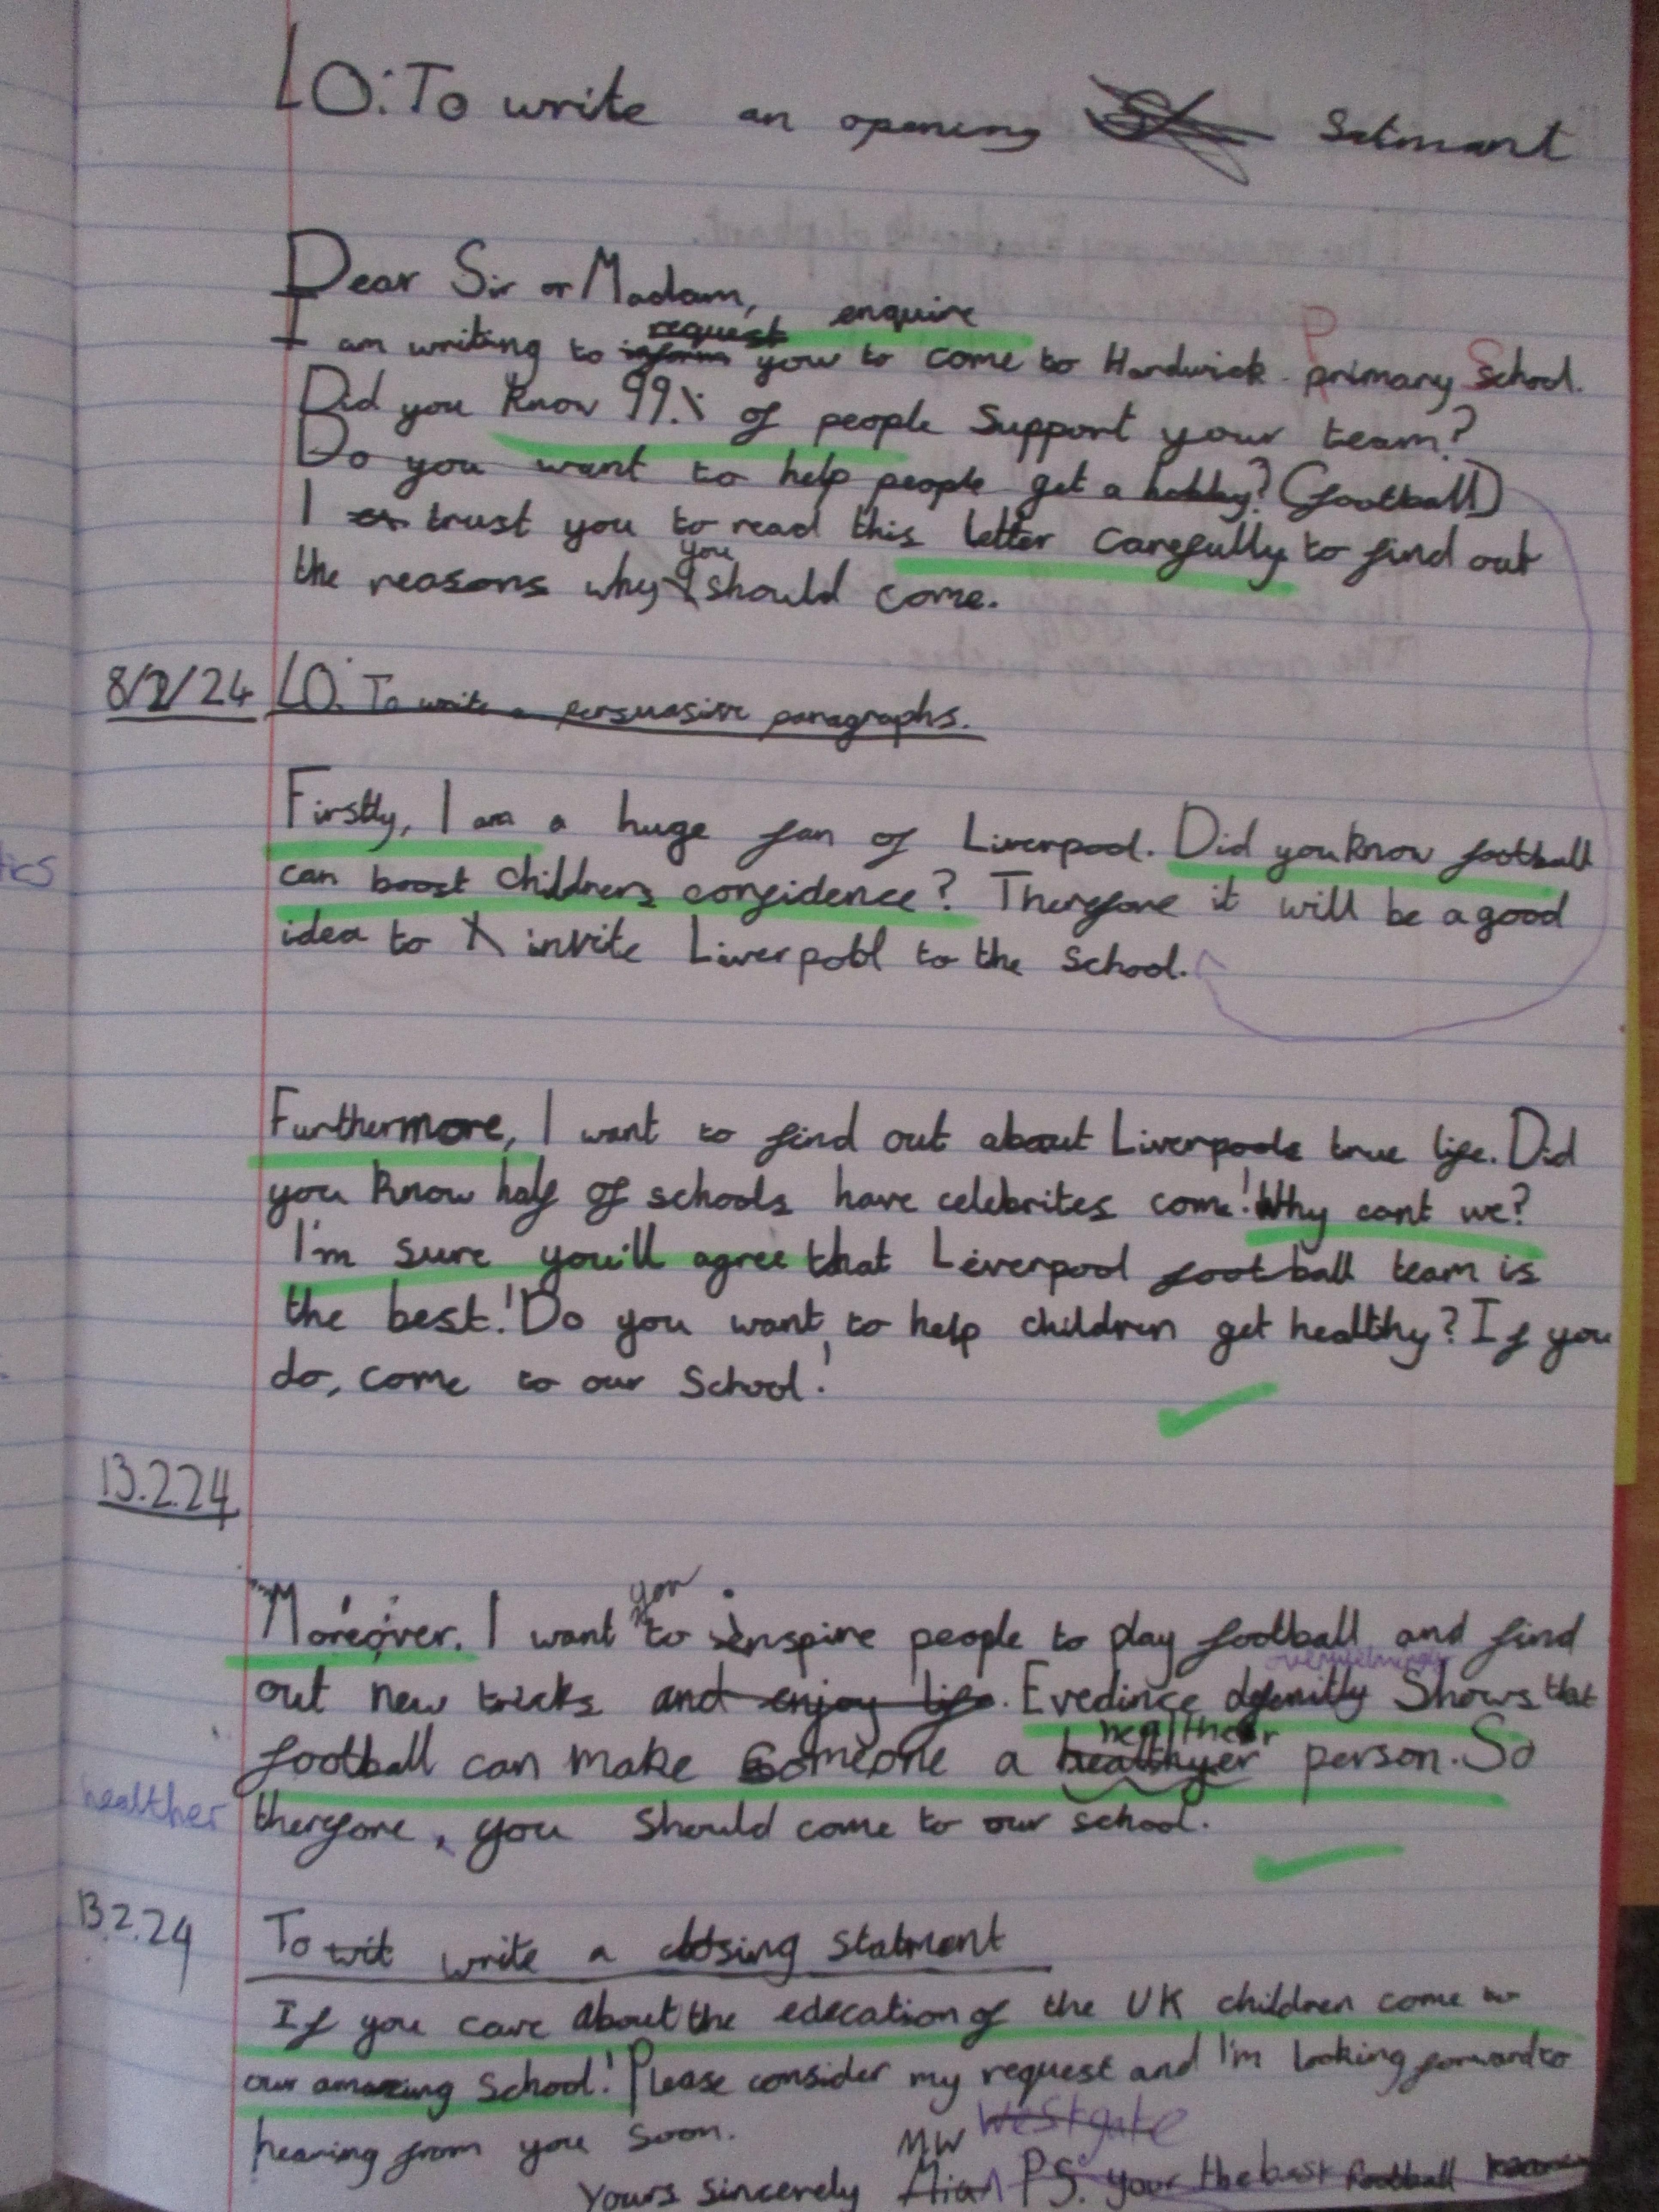 LO: To write an opening Satmant
Dear Sir or Madam,
request enquire
I am writing to inform you to come to Hardwick primary School.
P S
Did you know 99% of people Support your team?
Do you want to help people get a hobby? (football)
I trust you to read this letter carefully to find out
you
the reasons why I should come.
8/2/24 LO: To write a persuasive paragraphs.
Firstly, I am a huge fan of Liverpool. Did you know football
can boost childrens confidence? Therefore it will be a good
tics
idea to invite Liverpool to the School.
Furthermore, I want to find out about Liverpools true life. Did
you know half of schools have celebrites come! Why cant we?
I'm sure you'll agree that Liverpool football team is
the best! Do you want to help children get healthy? If you
do, come to our School!
13.2.24
you
Moreover, I want to inspire people to play football and find
overwelmingly
out new tricks and enjoy life. Evedince defenitly Shows that
healther
football can make Someone a healthyer person. So
healther therefore, you should come to our school.
13.2.24 To wit write a closing statment
If you care about the edecation of the UK children come to
our amazing School! Please consider my request and I'm looking forward to
hearing from you soon.
MW Westgate
Yours sincerely PS. your the best football